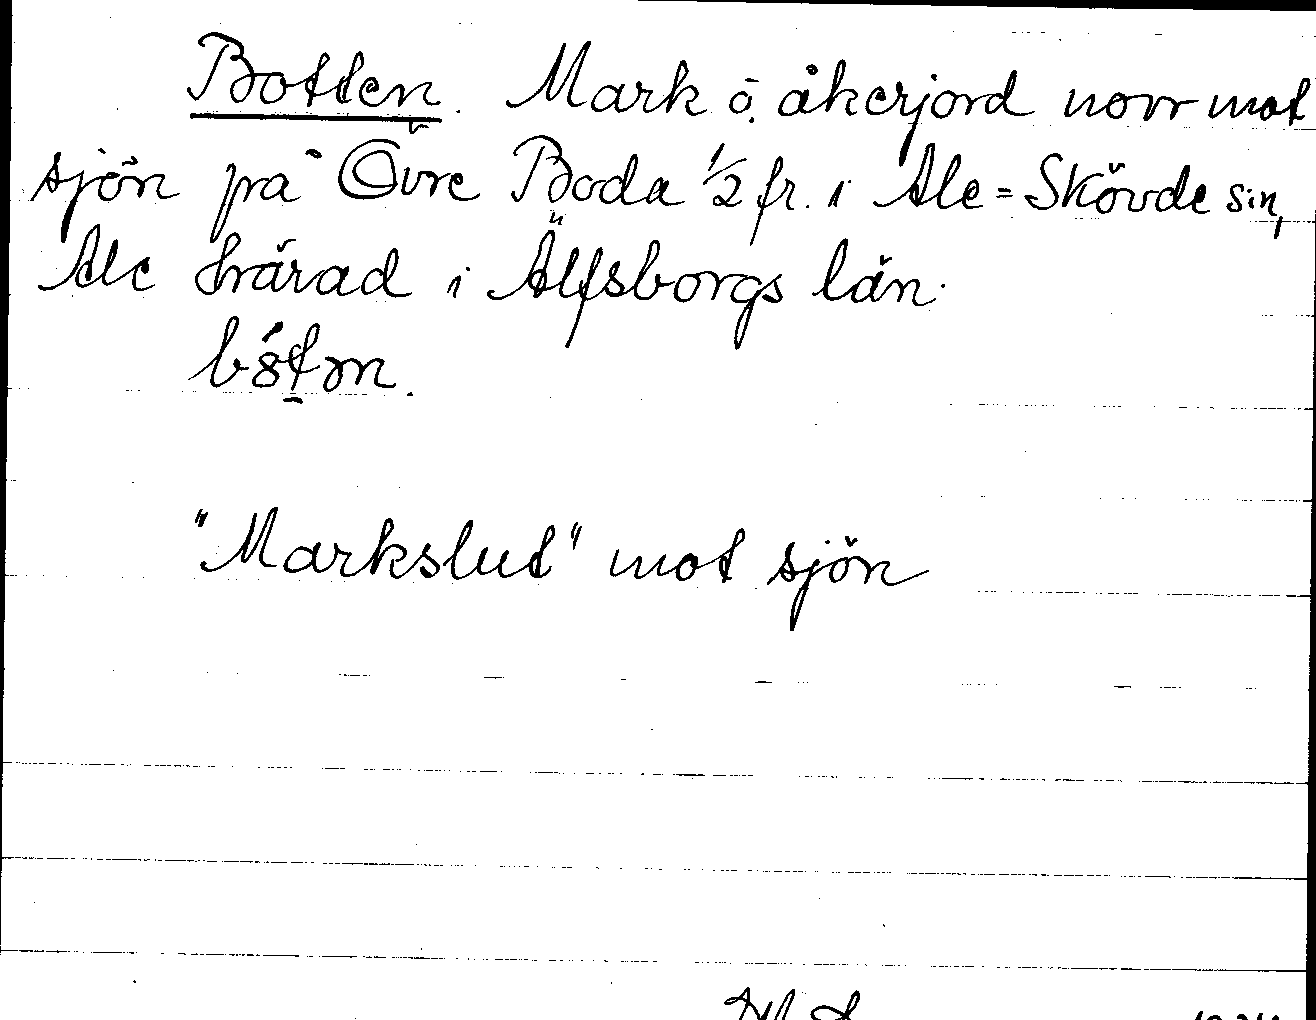 Botten. Mark ō. åkerjord norr mot
sjön på Övre Boda 1/2 fr. i Ale=Skövde sn,
Ale härad i Älfsborgs län.
"Markslut" mot sjön